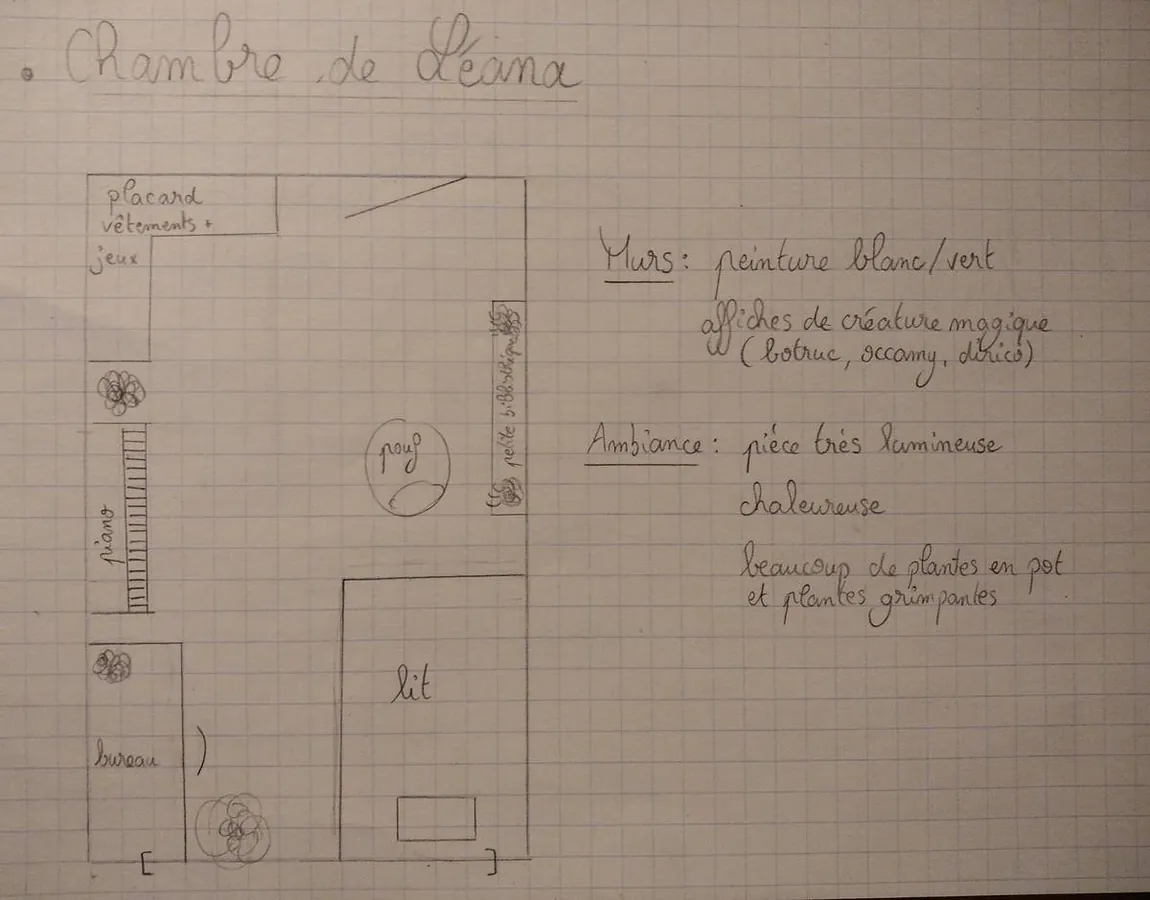 . Chambre de Léana
placard
vêtements +
jeux
piano
bureau
pouf
petite bibliothèque
lit
Murs : peinture blanc/vert
affiches de créature magique
(botruc, occamy, dirico)
Ambiance : pièce très lumineuse
chaleureuse
beaucoup de plantes en pot
et plantes grimpantes